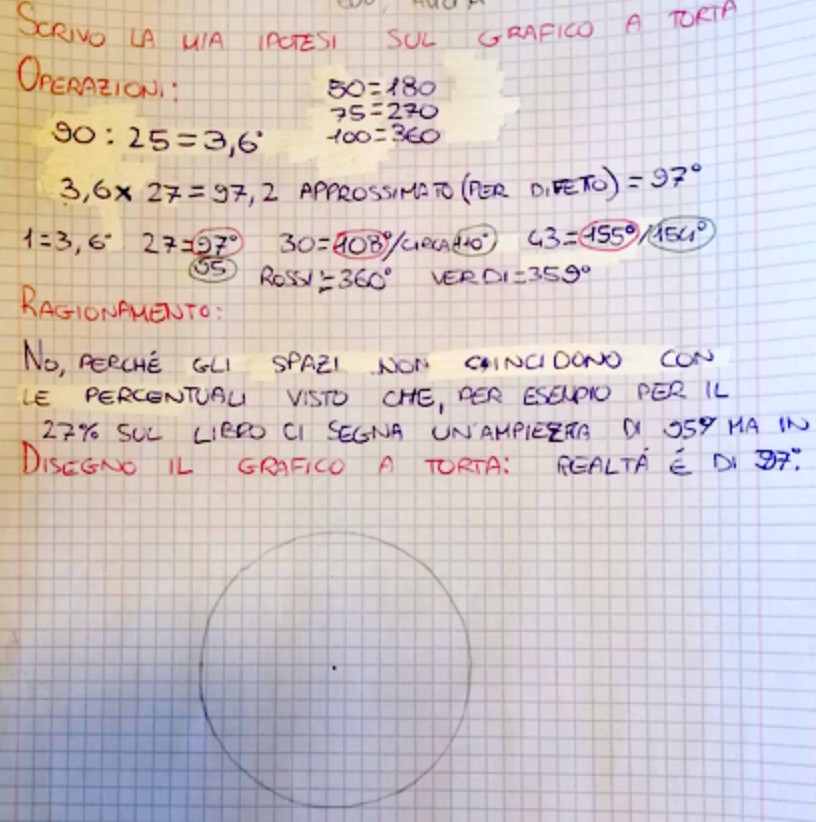 SCRIVO LA MIA IPOTESI SUL GRAFICO A TORTA
OPERAZIONI:
50=180
75=270
100=360
90:25=3,6°
3,6x 27=97,2 APPROSSIMATO (PER DIFETTO)=97°
1=3,6° 27=97° 30=108°/CIRCA 110° 43=155°/154°
95
ROSSI=360° VERDI=359°
RAGIONAMENTO:
NO, PERCHÉ GLI SPAZI NON COINCIDONO CON
LE PERCENTUALI VISTO CHE, PER ESEMPIO PER IL
27% SUL LIBRO CI SEGNA UN'AMPIEZZA DI 95° MA IN
REALTÁ É DI 97°.
DISEGNO IL GRAFICO A TORTA: